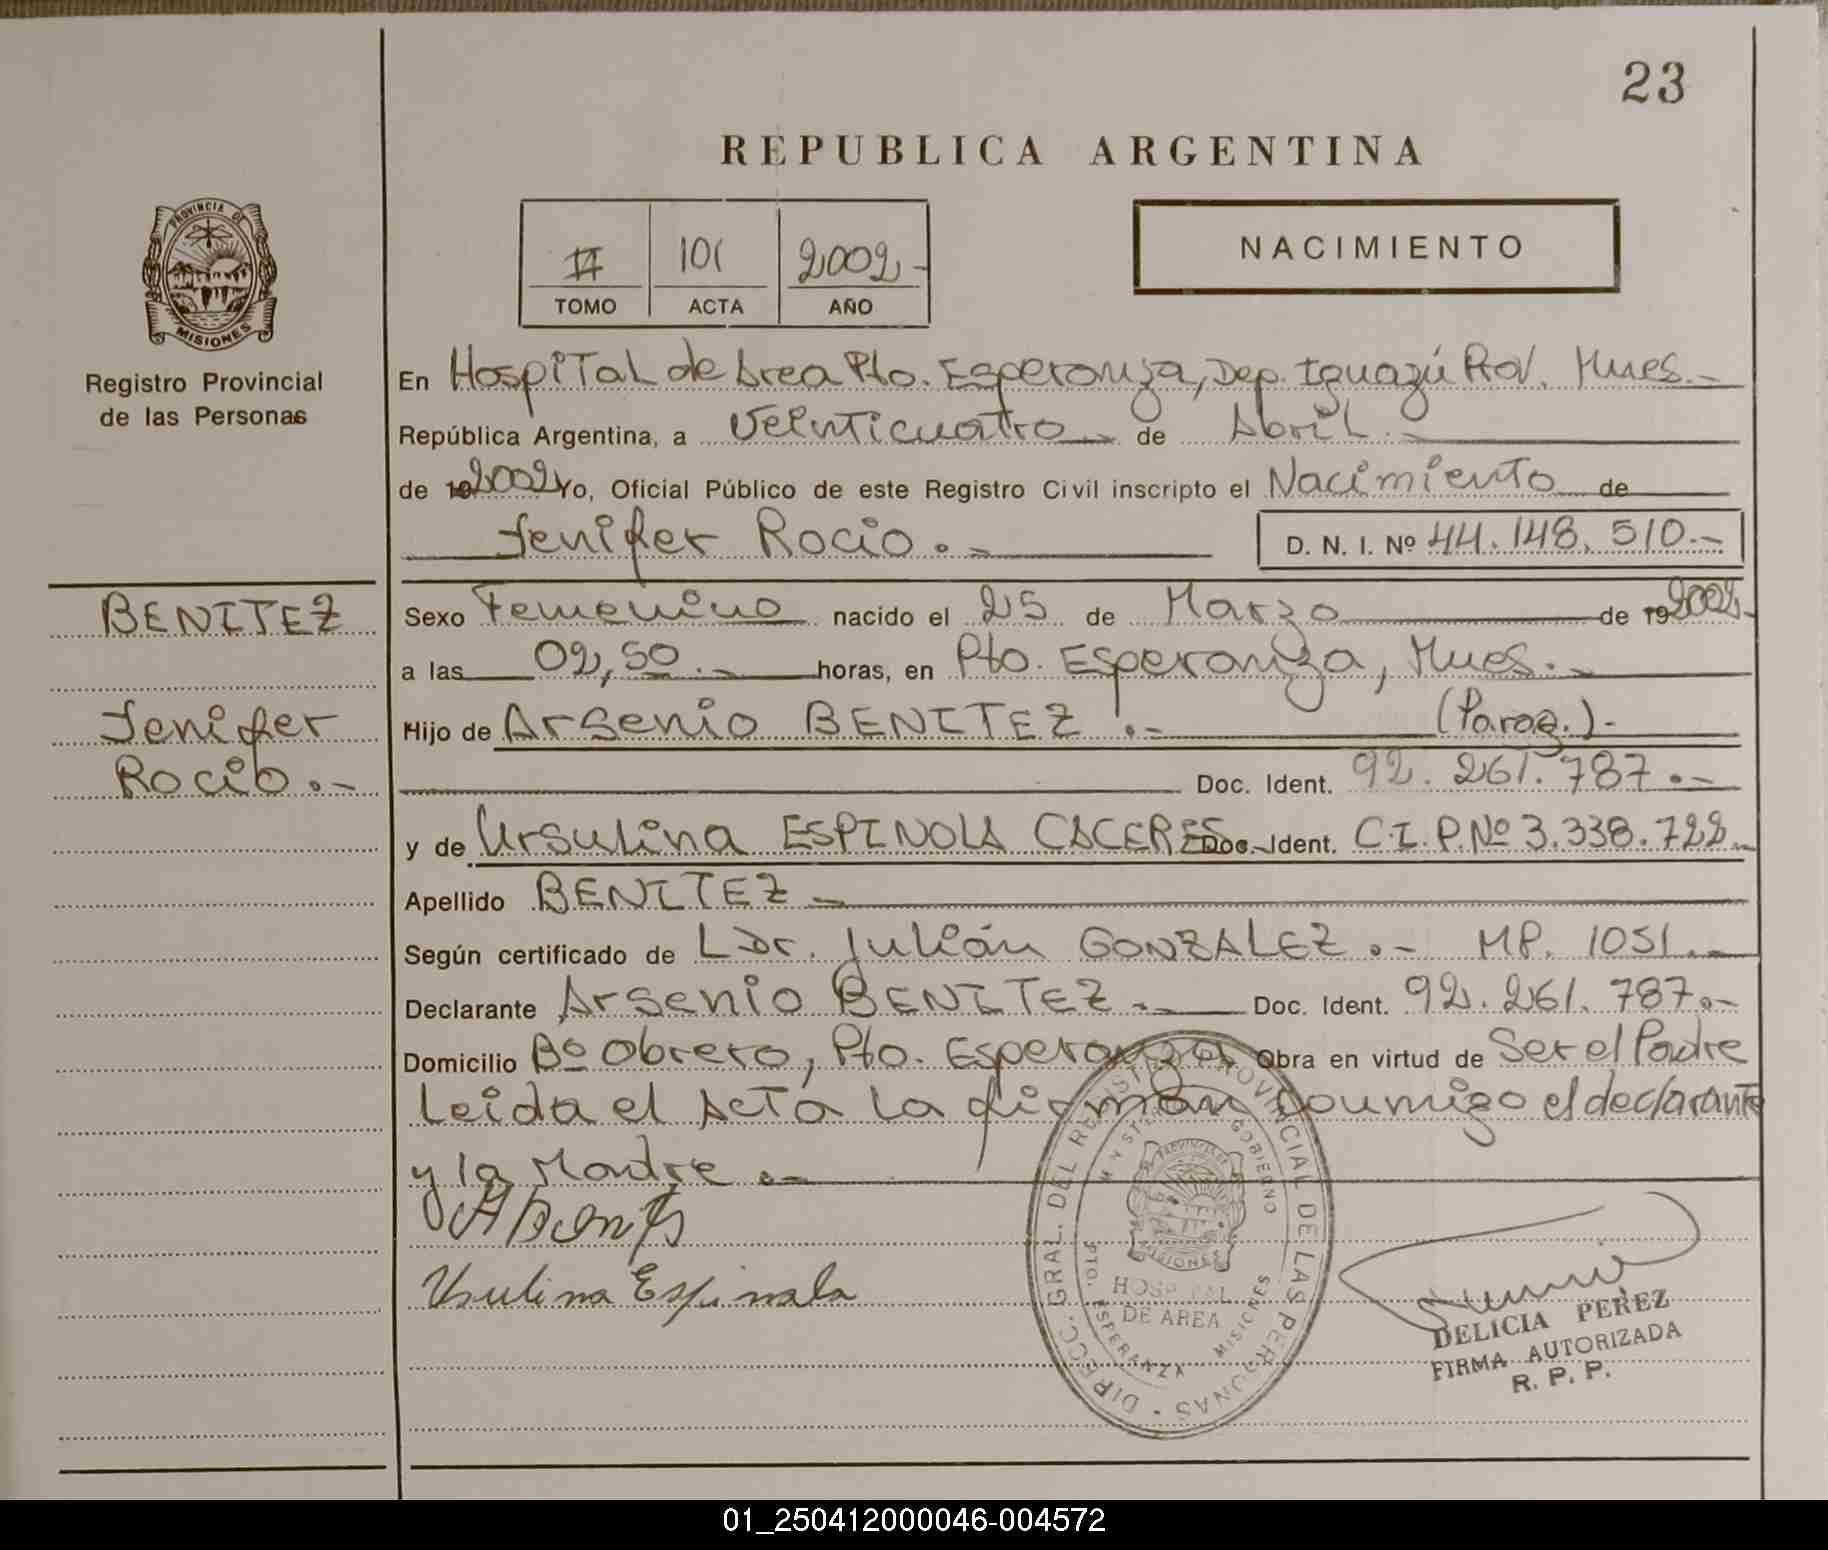 23
REPUBLICA ARGENTINA
PROVINCIA DE
MISIONES
Registro Provincial
de las Personas
II 101 2002.-
TOMO ACTA AÑO
NACIMIENTO
En Hospital de Area Pto. Esperanza, Dep. Iguazú Prov. Mnes.-
República Argentina, a Veinticuatro de Abril.-
de 2002 Yo, Oficial Público de este Registro Civil inscripto el Nacimiento de
Jenifer Rocio.- D. N. I. Nº 44.148.510.-
BENITEZ
Jenifer
Rocio.-
Sexo Femenino nacido el 25 de Marzo de 2002.-
a las 02,50.- horas, en Pto. Esperanza, Mnes.-
Hijo de Arsenio BENITEZ.- (Parag.).-
Doc. Ident. 92.261.787.-
y de Ursulina ESPINOLA CACERES.- Doc. Ident. C.I.P.Nº 3.338.722.-
Apellido BENITEZ.-
Según certificado de L Dr. Julián GONZALEZ.- MP. 1051.-
Declarante Arsenio BENITEZ.- Doc. Ident. 92.261.787.-
Domicilio Bº Obrero, Pto. Esperanza Obra en virtud de Ser el Padre
Leida el Acta la firman conmigo el declarante
y la Madre.-
Ursulina Espinola
DIRECC. GRAL. DEL REGISTRO PROVINCIAL DE LAS PERSONAS
GOBIERNO
PROVINCIA DE
MISIONES
HOSPITAL
DE AREA
PTO. ESPERANZA MISIONES
DELICIA PEREZ
FIRMA AUTORIZADA
R. P. P.
01_250412000046-004572